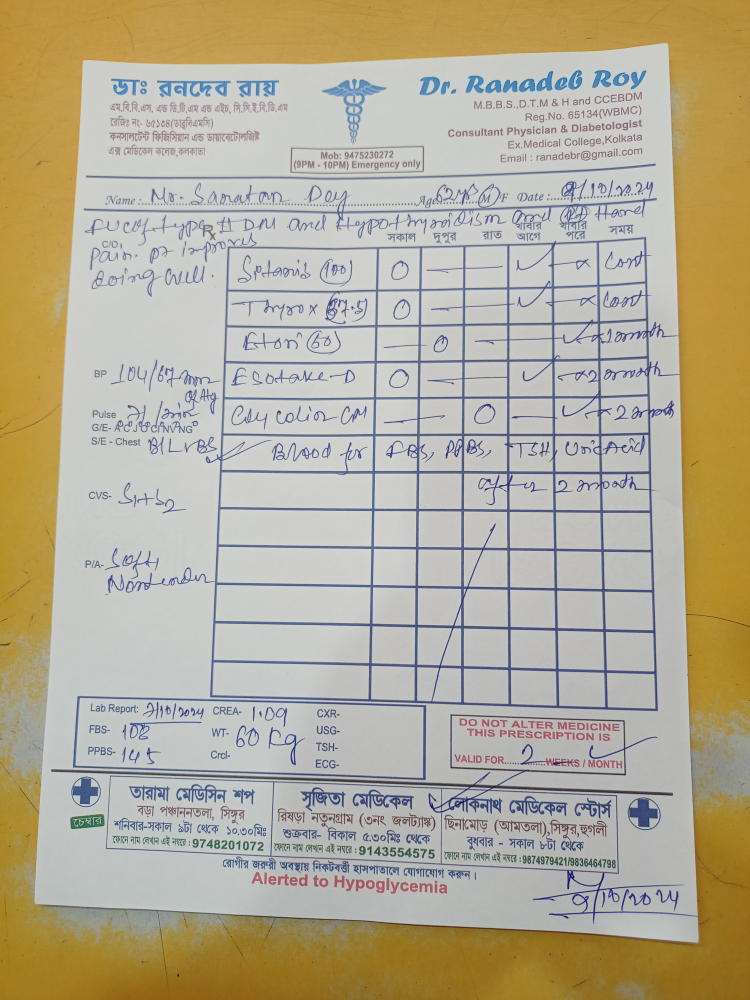 ডাঃ রনদেব রায়
এম.বি.বি.এস. এন্ড ডি.টি.এম এন্ড এইচ, সি.সি.ই.বি.ডি.এম
রেজিঃ নং- ৬৫১৩৪(ডাব্লুবিএমসি)
কনসালটেন্ট ফিজিসিয়ান এন্ড ডায়াবেটোলজিষ্ট
এক্স মেডিকেল কলেজ,কলকাতা
Mob: 9475230272
(9PM - 10PM) Emergency only
Dr. Ranadeb Roy
M.B.B.S.,D.T.M & H and CCEBDM
Reg.No. 65134(WBMC)
Consultant Physician & Diabetologist
Ex.Medical College,Kolkata
Email : ranadebr@gmail.com
Name : Mr. Sanatan Dey Age M/F Date : 9/10/2024
Type II DM and Hypothyroidism and Hand
Rx
C/O
Pain. pt improves
doing well.
সকাল দুপুর রাত খাবার আগে খাবার পরে সময়
(100) O — — ✓ —x Cont
Thyrox (37.5) O — — ✓ —x Cont
Etori (60) — O — ✓ —x 1 month
Esotake-D O — — ✓ —x 2 month
— — O — ✓ —x 2 month
Blood for FBS, PPBS, TSH, Uric Acid
after 2 month
BP 104/67 mm of Hg
Pulse 71/min
G/E-
S/E - Chest BLVBS
CVS- S1+S2
P/A- Soft
Nontender
Lab Report: 7/10/2024 CREA- 1.09 CXR-
FBS- 108 WT- 60 Kg USG-
PPBS- 145 Crcl- TSH-
ECG-
DO NOT ALTER MEDICINE
THIS PRESCRIPTION IS
VALID FOR 2 WEEKS / MONTH
চেম্বার
তারামা মেডিসিন শপ
বড়া পঞ্চাননতলা, সিঙ্গুর
শনিবার-সকাল ৯টা থেকে ১০.৩০মিঃ
ফোনে নাম লেখান এই নম্বরে : 9748201072
সৃজিতা মেডিকেল
রিষড়া নতুনগ্রাম (৩নং জলট্যাঙ্ক)
শুক্রবার- বিকাল ৫.৩০মিঃ থেকে
ফোনে নাম লেখান এই নম্বরে : 9143554575
লোকনাথ মেডিকেল স্টোর্স
ছিনামোড় (আমতলা),সিঙ্গুর,হুগলী
বুধবার - সকাল ৮টা থেকে
ফোনে নাম লেখান এই নম্বরে : 9874979421/9836464798
রোগীর জরুরী অবস্থায় নিকটবর্ত্তী হাসপাতালে যোগাযোগ করুন।
Alerted to Hypoglycemia
9/10/2024